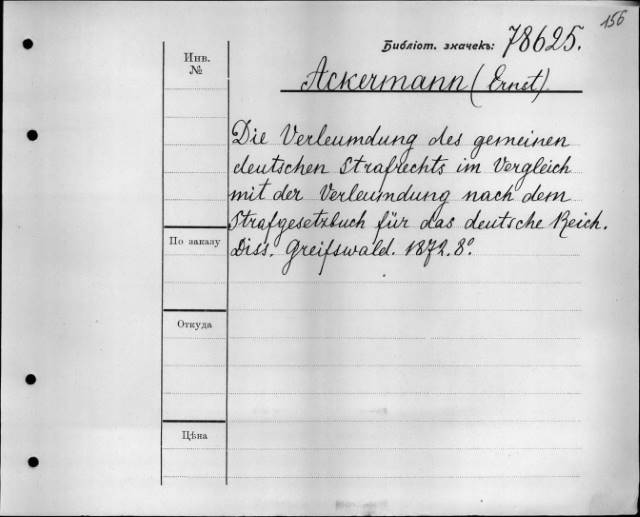 156
Библіот. значекъ: 78625.
Инв.
№
Ackermann (Ernst)
Die Verleumdung des gemeinen
deutschen Strafrechts im Vergleich
mit der Verleumdung nach dem
Strafgesetzbuch für das deutsche Reich.
По заказу
Diss. Greifswald. 1872. 8º.
Откуда
Цѣна